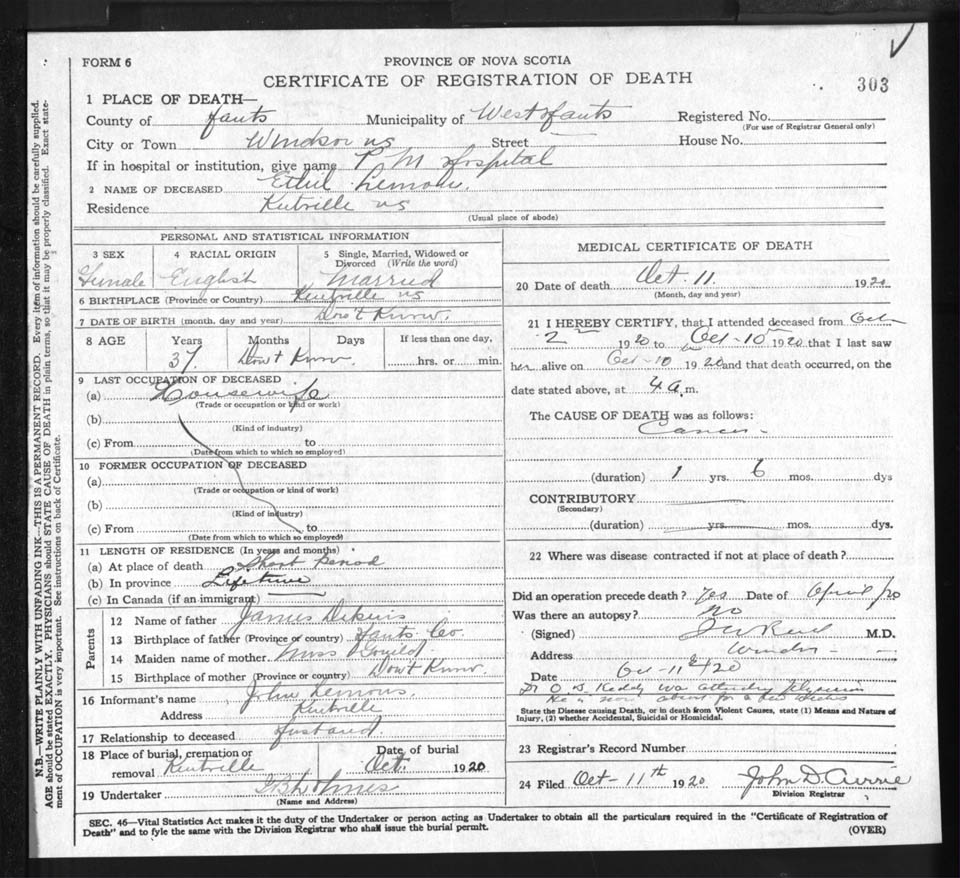 FORM 6
PROVINCE OF NOVA SCOTIA
CERTIFICATE OF REGISTRATION OF DEATH
303
1 PLACE OF DEATH—
County of Hants Municipality of West Hants Registered No.
(For use of Registrar General only)
City or Town Windsor NS Street House No.
If in hospital or institution, give name P M Hospital
2 NAME OF DECEASED Ethel Lemon
Residence Kentville NS
(Usual place of abode)
PERSONAL AND STATISTICAL INFORMATION
3 SEX 4 RACIAL ORIGIN 5 Single, Married, Widowed or Divorced (Write the word)
Female English Married
6 BIRTHPLACE (Province or Country) Kentville NS
7 DATE OF BIRTH (month, day and year) Don't Know.
8 AGE Years Months Days If less than one day,
37 Don't Know hrs. or min.
9 LAST OCCUPATION OF DECEASED
(a) Housewife
(Trade or occupation or kind or work)
(b)
(Kind of industry)
(c) From to
(Date from which to which so employed)
10 FORMER OCCUPATION OF DECEASED
(a)
(Trade or occupation or kind of work)
(b)
(Kind of industry)
(c) From to
(Date from which to which so employed)
11 LENGTH OF RESIDENCE (In years and months)
(a) At place of death Short Period
(b) In province Lifetime
(c) In Canada (if an immigrant)
Parents
12 Name of father James
13 Birthplace of father (Province or country) Hants Co.
14 Maiden name of mother Miss Gould
15 Birthplace of mother (Province or country) Don't Know.
16 Informant's name John Lemons.
Address Kentville
17 Relationship to deceased Husband.
18 Place of burial, cremation or Date of burial
removal Kentville Oct. 1920
19 Undertaker
(Name and Address)
MEDICAL CERTIFICATE OF DEATH
20 Date of death Oct-11. 1920
(Month, day and year)
21 I HEREBY CERTIFY, that I attended deceased from Oct
2 1920 to Oct-10 1920 that I last saw
her alive on Oct-10 1920 and that death occurred, on the
date stated above, at 4 a.m.
The CAUSE OF DEATH was as follows:
Cancer-
(duration) 1 yrs. 6 mos. dys
CONTRIBUTORY
(Secondary)
(duration) yrs. mos. dys.
22 Where was disease contracted if not at place of death?
Did an operation precede death? Yes Date of April/20
Was there an autopsy? No
(Signed) M.D.
Address Windsor
Date Oct-11 20
Dr O. B. Keddy was attending physician
State the Disease causing Death, or in death from Violent Causes, state (1) Means and Nature of
Injury, (2) whether Accidental, Suicidal or Homicidal.
23 Registrar's Record Number
24 Filed Oct-11th 1920 John D. Currie
Division Registrar
SEC. 46—Vital Statistics Act makes it the duty of the Undertaker or person acting as Undertaker to obtain all the particulars required in the "Certificate of Registration of
Death" and to fyle the same with the Division Registrar who shall issue the burial permit.
(OVER)
N.B.—WRITE PLAINLY WITH UNFADING INK—THIS IS A PERMANENT RECORD. Every item of information should be carefully supplied.
AGE should be stated EXACTLY. PHYSICIANS should STATE CAUSE OF DEATH in plain terms, so that it may be properly classified. Exact state-
ment of OCCUPATION is very important. See instructions on back of Certificate.